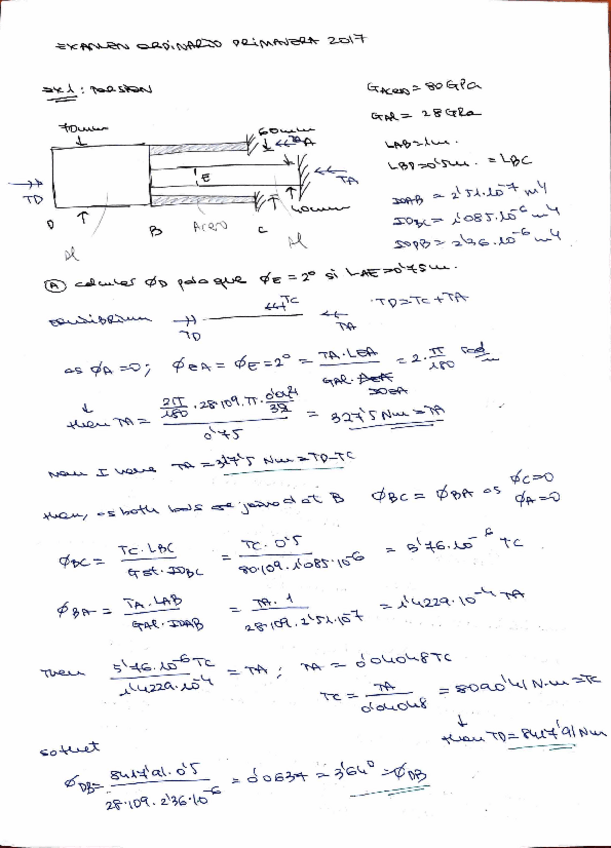 EXAMEN ORDINARIO PRIMAVERA 2017
EX1: TORSION
GACERO = 80 GPa
GAL = 28 GPa
LAB = 1m.
LBD = 0'5m. = LBC
IOAB = 2'51.10-7 m4
IOBC = 1'085.10-6 m4
IODB = 2'36.10-6 m4
70mm
60mm
TA
E
TA
TD
40mm
D
B
Acero
C
Al
Al
A calcular ØD para que ØE = 2º si LAE = 0'75m.
Equilibrium
TD
TC
TA
TD = TC + TA
as ØA = 0; ØEA = ØE = 2º = TA.LEA / GAL. IOEA = 2.π/180 rad
then TA = 2π/180 . 28.109.π.0'044/32 / 0'75 = 327'5 Nm = TA
Now I have TA = 327'5 Nm = TD-TC
then, as both bars are joined at B ØBC = ØBA as ØC=0 ØA=0
ØBC = TC.LBC / Gst.IOBC = TC. 0'5 / 80.109.1'085.10-6 = 5'76.10-6 TC
ØBA = TA.LAB / GAL.IOAB = TA. 1 / 28.109.2'51.10-7 = 1'4229.10-4 TA
Then 5'76.10-6 TC / 1'4229.10-4 = TA; TA = 0'04048 TC
TC = TA / 0'04048 = 8090'41 N.m = TC
then TD = 8417'91 Nm
so that
ØDB = 8417'91.0'5 / 28.109.2'36.10-6 = 0'0637 = 3'64º = ØDB